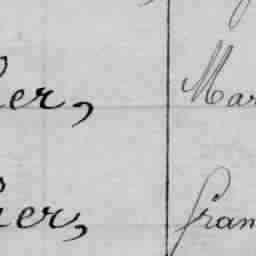 er, Mar
er, fran